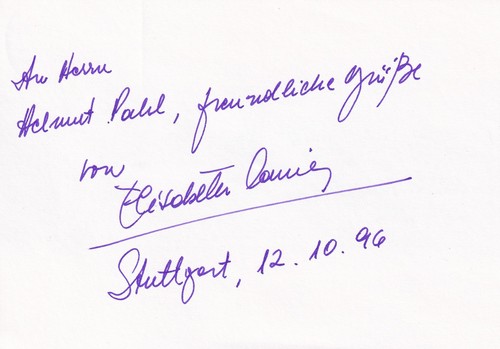 An Herrn
Helmut Pahl, freundliche Grüße
von
Elisabeth
Stuttgart, 12.10.96